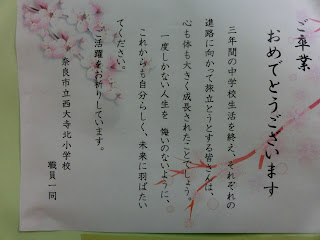 ご卒業
おめでとうございます
三年間の中学校生活を終え、それぞれの
進路に向かって旅立とうとする皆さんは、
心も体も大きく成長されたことでしょう。
一度しかない人生を 悔いのないように、
これからも自分らしく、未来に羽ばたい
てください。
ご活躍をお祈りしています。
奈良市立西大寺北小学校
職員一同